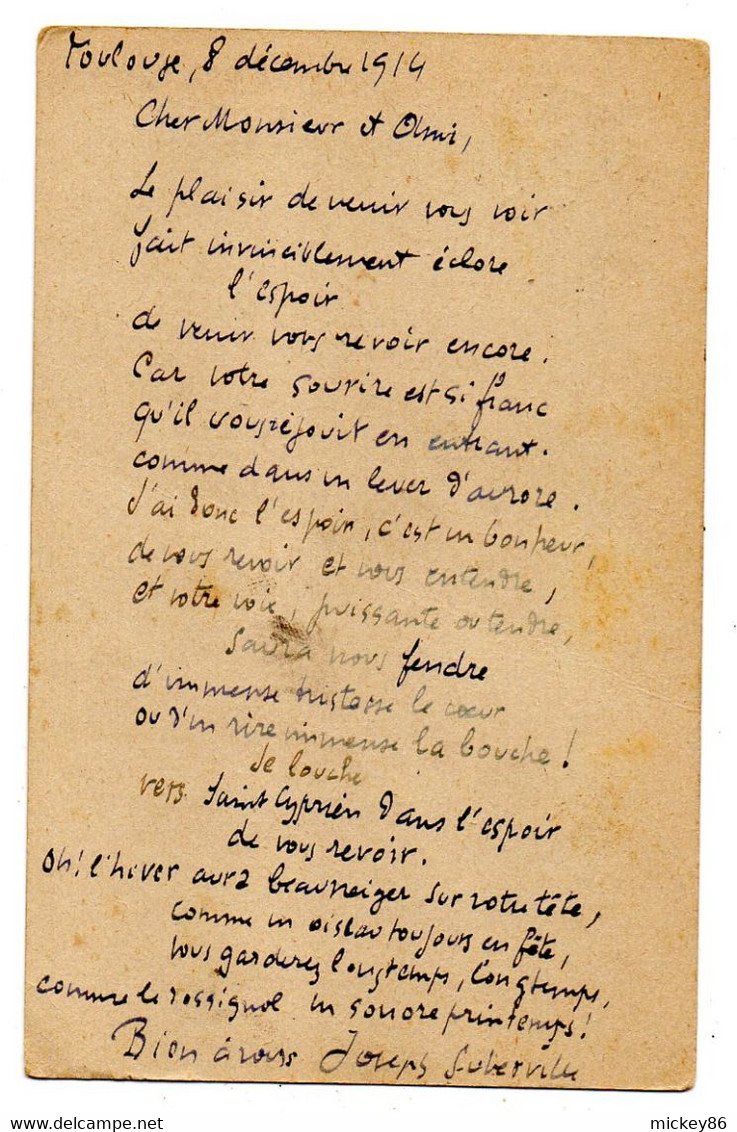 Toulouse, 8 décembre 1914
Cher Monsieur et Ami,
Le plaisir de venir vous voir
fait invinciblement éclore
l'espoir
de venir vous revoir encore.
Car votre sourire est si franc
qu'il vous réjouit en entrant.
comme dans un lever d'aurore.
J'ai donc l'espoir, c'est un bonheur,
de vous revoir et vous entendre,
et votre voix, puissante ou tendre,
saura nous fendre
d'immense tristesse le cœur
ou d'un rire immense la bouche!
Je louche
vers Saint Cyprien dans l'espoir
de vous revoir.
Oh! l'hiver aura beau neiger sur votre tête,
comme un oiseau toujours en fête,
vous garderez longtemps, longtemps,
comme le rossignol un sonore printemps!
Bien à vous Joseph Suberville
mickey86